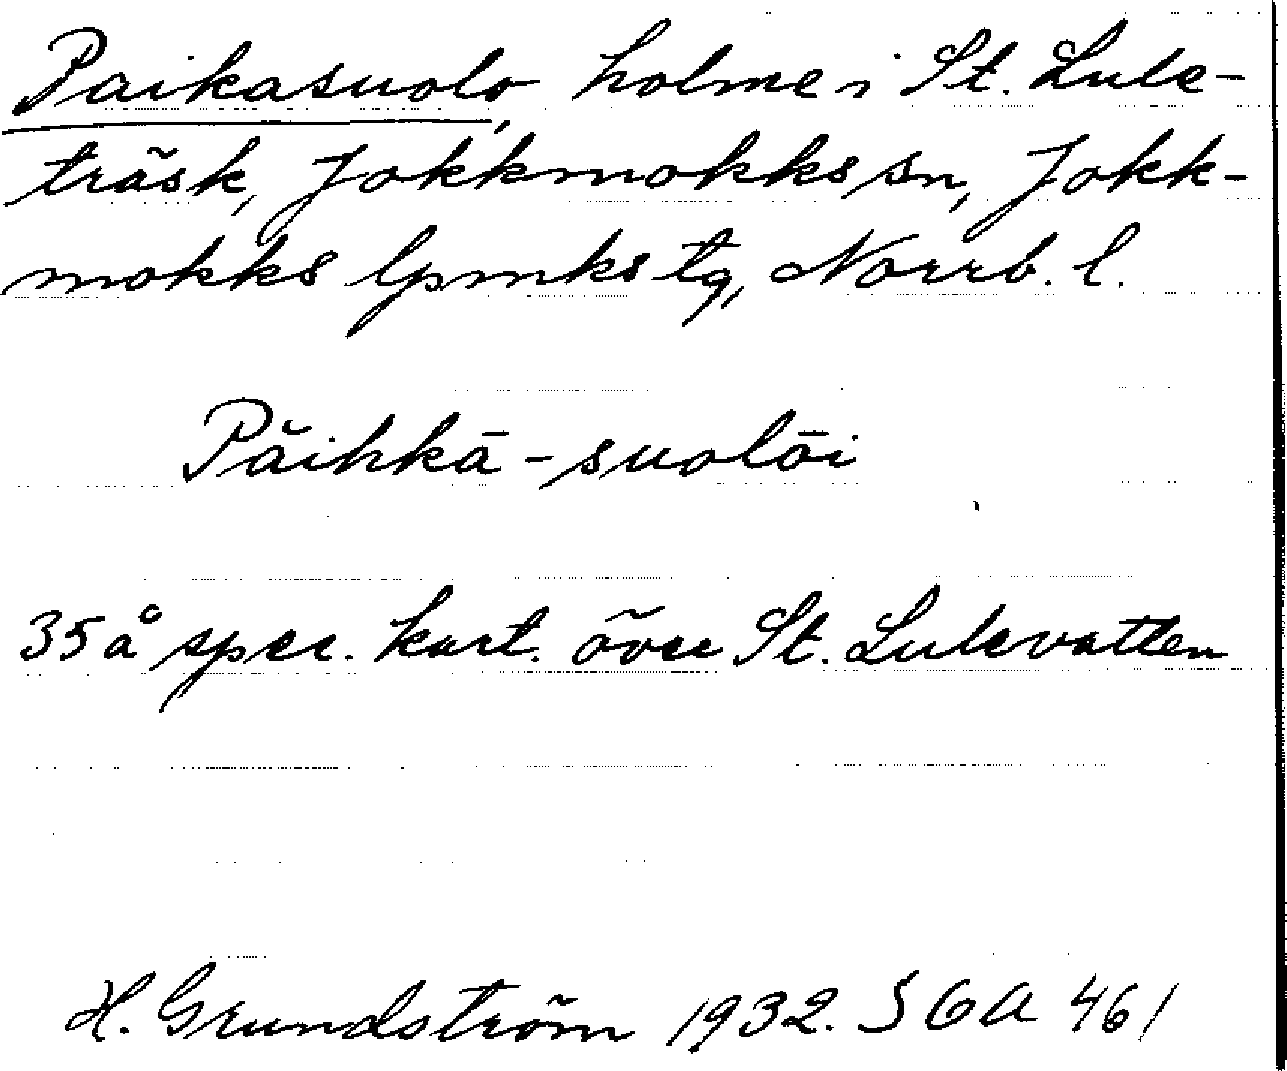 Paikasuolo, holme i St. Lule-
träsk, Jokkmokks sn, Jokk-
mokks lpmks tg, Norrb. l.
Păihkā-suolōi
35 å spec. kart. över St. Lulevatten
H. Grundström 1932. SGA 461